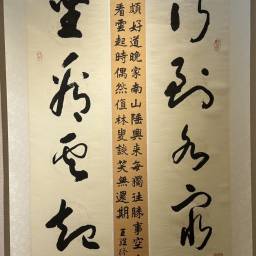 行到水窮
頗好道晚家南山陲興來每獨往勝事空
看雲起時偶然值林叟談笑無還期 王維
坐看雲起